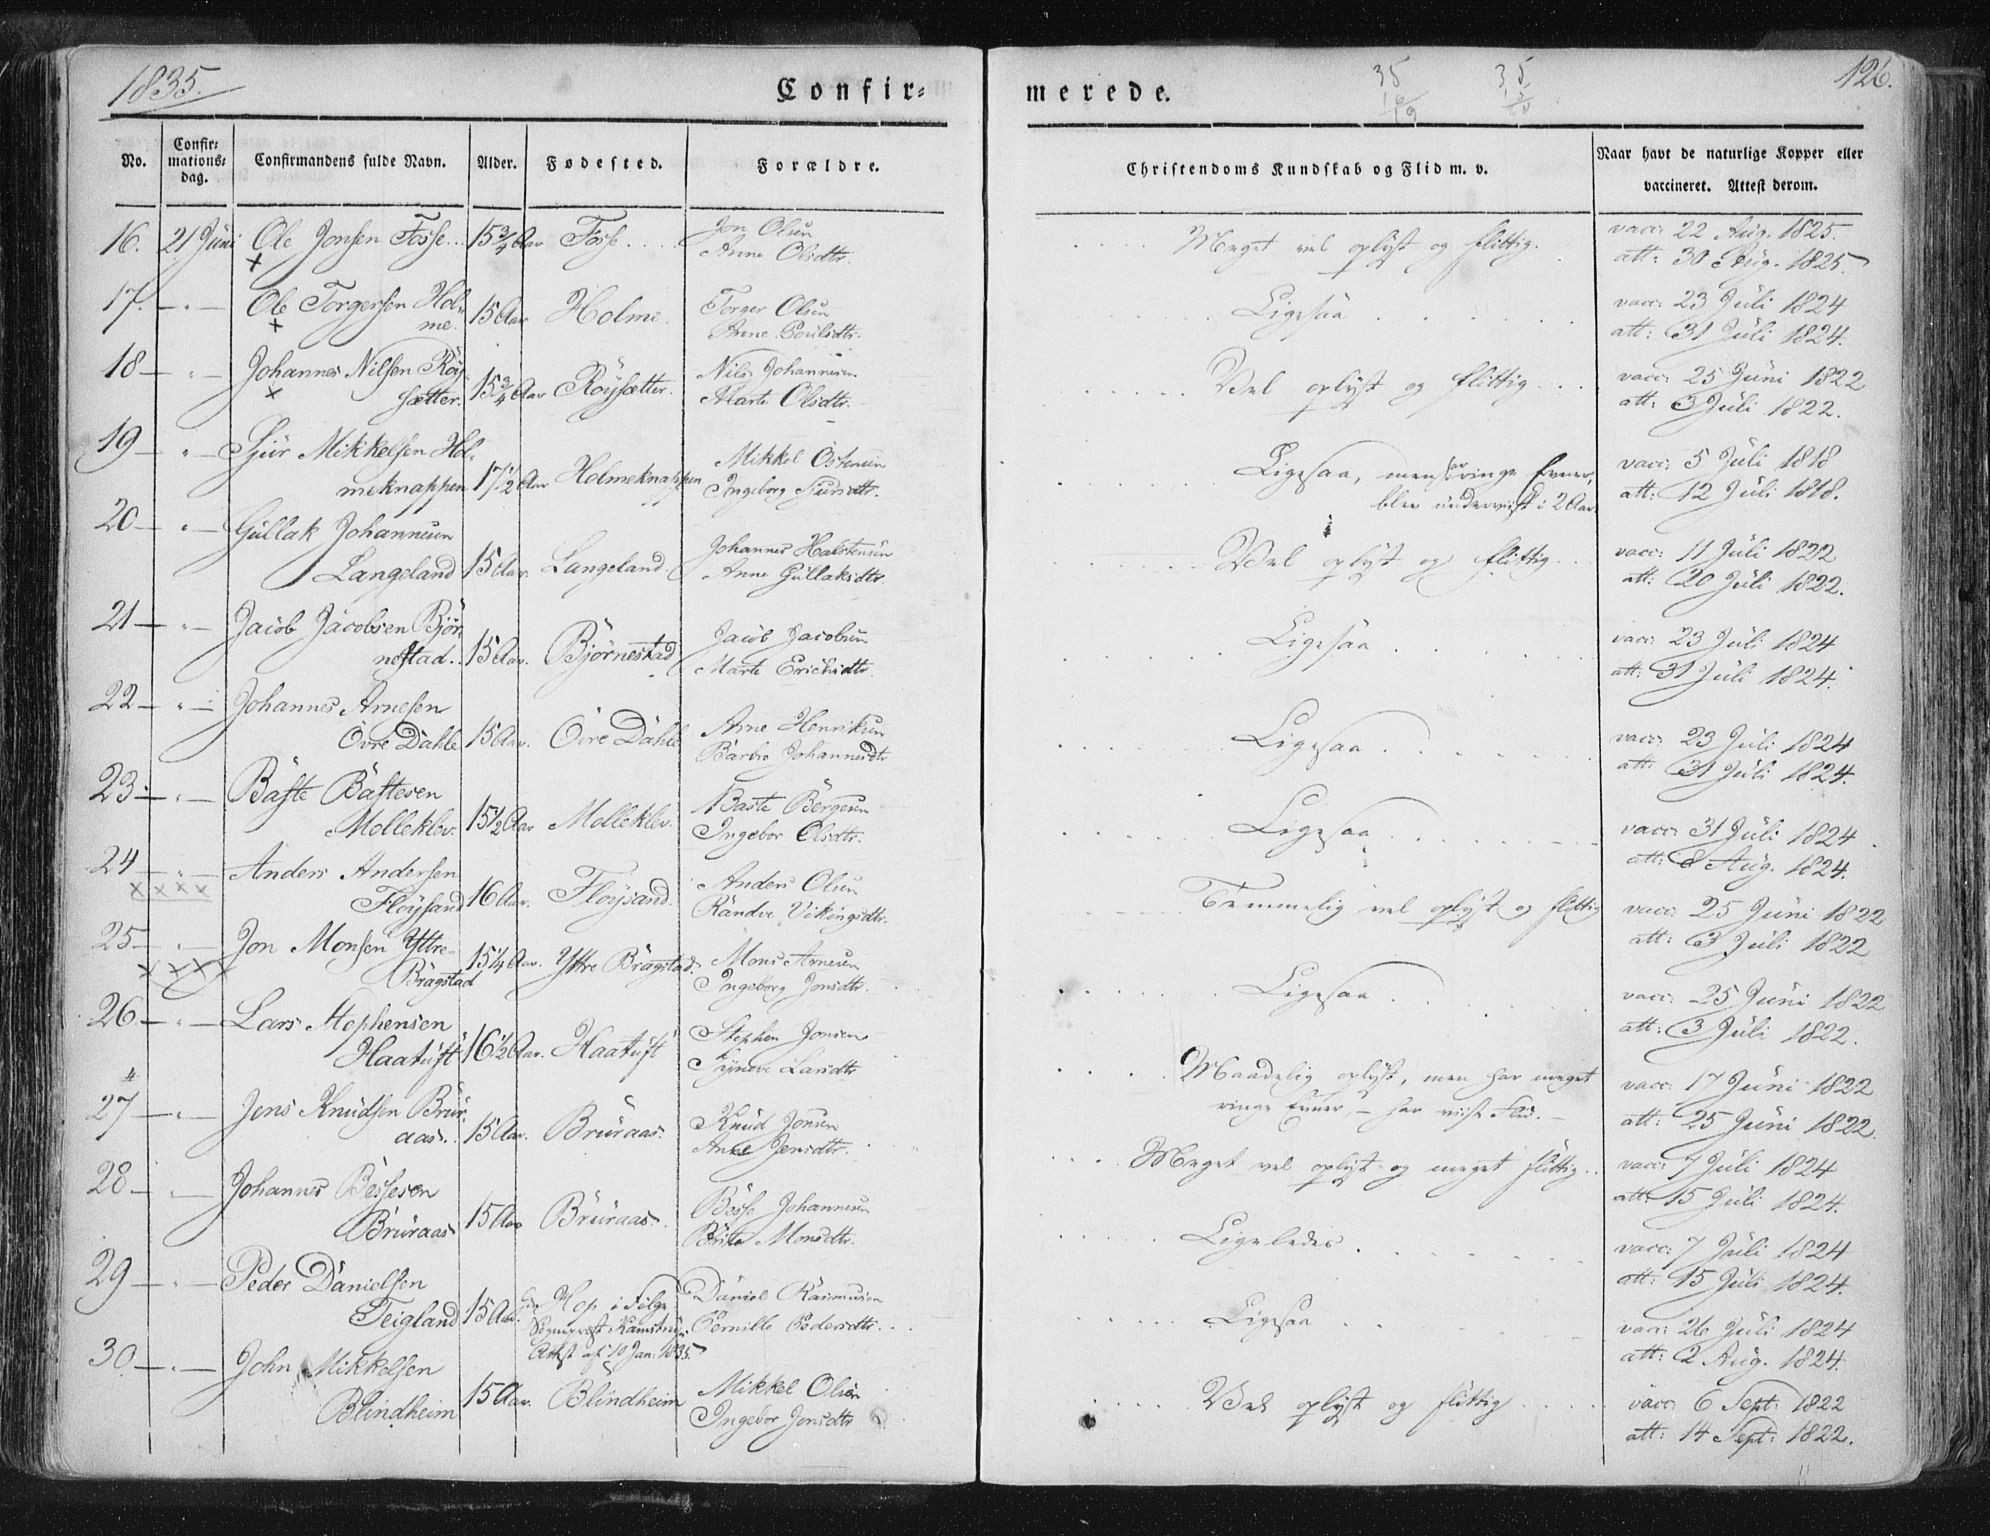 1835.
Confir-
merede.
35 35
126.
No.
Confir-
mations-
dag.
Confirmandens fulde Navn.
Alder.
Fødested.
Forældre.
Christendoms Kundskab og Flid m. v.
Naar havt de naturlige Kopper eller
vaccineret. Attest derom.
16. 21 Juni Ole Jonsen Fosse... 15 3/4 Aar Fosse.... Jon Olsen
Anne Olsdtr.
Meget vel oplyst og flittig. vacc: 22 Aug. 1825.
att: 30 Aug. 1825.
17. — " — Ole Torgersen Hol-
me. 15 Aar Holme. Torger Olsen
Anne Poulsdtr.
Ligesaa vacc: 23 Juli 1824
att: 31 Juli 1824.
18 — " — Johannes Nilsen Röy-
sætter. 15 3/4 Aar Röysætter. Nils Johannesen
Marte Olsdtr.
Vel oplyst og flittig vacc: 25 Juni 1822
att: 3 Juli 1822.
19 — " — Sjur Mikkelsen Hol-
meknappen 17 1/2 Aar Holmeknappen Mikkel Østensen
Ingeborg Sjursdtr.
Ligesaa, men har ringe Evner,
blev underviist i 2 Aar. vacc: 5 Juli 1818
att: 12 Juli 1818.
20 — " — Gullak Johannesen
Langeland 15 Aar. Langeland. Johannes Halstensen
Anne Gullaksdtr.
Vel oplyst og flittig vacc: 11 Juli 1822
att: 20 Juli 1822.
21 — " — Jacob Jacobsen Bjør-
nestad.. 15 Aar. Bjørnestad Jacob Jacobsen
Marte Erichsdtr.
Ligesaa vacc: 23 Juli 1824
att: 31 Juli 1824.
22 — " — Johannes Arnesen
Øvre Dahle 15 Aar. Øvre Dahle Arne Henriksen
Barbro Johannesdtr
Ligesaa vacc: 23 Juli 1824
att: 31 Juli 1824.
23 — " — Baste Bastesen
Molleklev. 15 1/2 Aar Molleklev. Baste Børgesen
Ingebor Olsdtr.
Ligesaa vacc: 31 Juli 1824
att: 8 Aug. 1824.
24 — " — Anders Andersen
Fløysand 16 Aar. Fløysand. Anders Olsen
Randve Vikingsdtr.
Temmelig vel oplyst og flittig vacc: 25 Juni 1822
att: 3 Juli 1822
25 — " — Jon Monsen Yttre-
Bragstad 15 1/4 Aar. Yttre Bragstad. Mons Arnesen
Ingeborg Jonsdtr.
Ligesaa vacc: 25 Juni 1822
att: 3 Juli 1822.
26 — " — Lars Stephensen
Haatuft 16 1/2 Aar. Haatuft Stephen Jonsen
Synneve Larsdtr
Maadelig oplyst, men har meget
ringe Evner, – har viist Flid. — vacc: 17 Juni 1822
att: 25 Juni 1822.
27 — " — Jens Knudsen Brur-
aas. 15 Aar. Bruraas. Knud Jonsen
Anne Jensdtr.
Meget vel oplyst og meget flittig. vacc: 7 Juli 1824
att: 15 Juli 1824.
28 — " — Johannes Besseson
Bruraas 15 Aar Bruraas. Besse Johannesen
Brite Monsdtr.
Ligeledes vacc: 7 Juli 1824
att: 15 Juli 1824.
29 — " — Peder Danielsen
Teigland 15 Aar. Hop i Følge
Sognepræst
Attest af 10 Jan: 1835 Daniel Rasmusen
Pernille Pedersdtr.
Ligesaa vacc: 26 Juli 1824
att: 2 Aug. 1824.
30 — " — John Mikkelsen
Blindheim 15 Aar. Blindheim Mikkel Olsen
Ingebor Jonsdtr
Vel oplyst og flittig vacc: 6 Sept: 1822
att: 14 Sept: 1822.